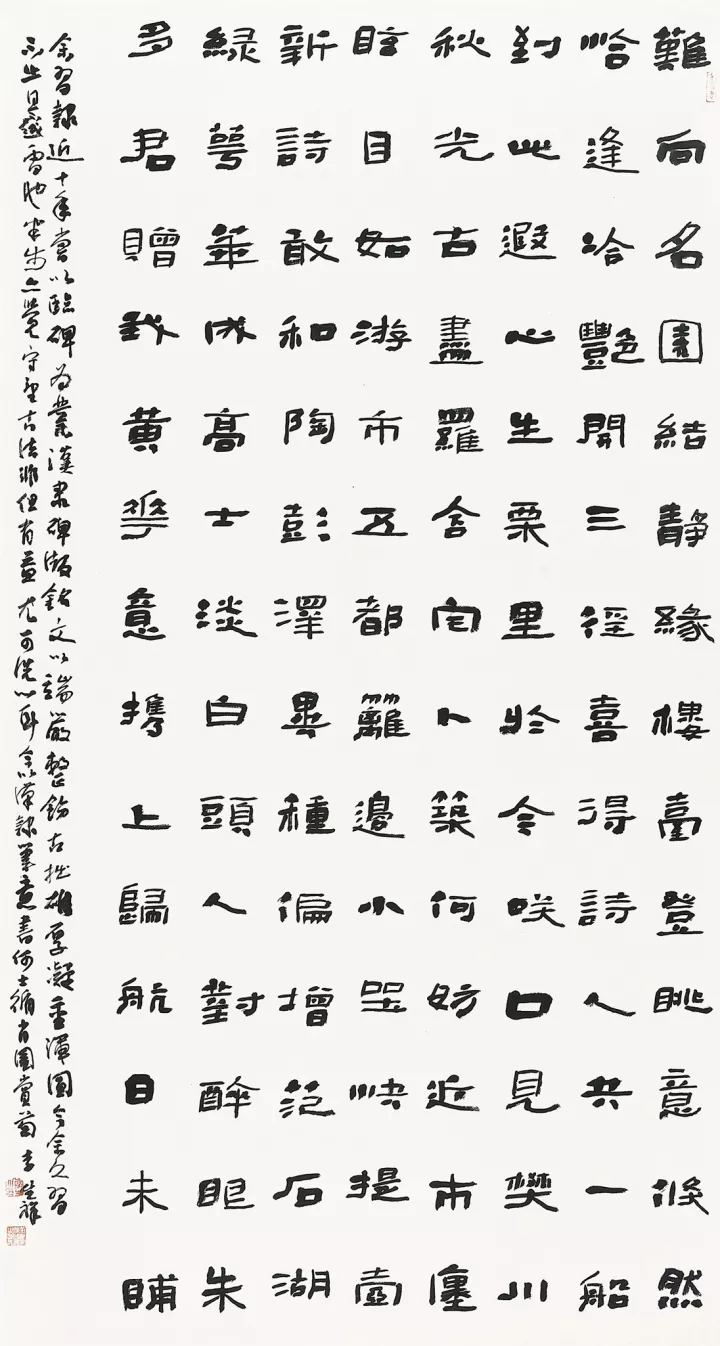 難向名園結靜緣樓臺登眺意攸然
恰逢冷豔開三徑喜得詩人共一船
對此遐心生栗里於今咲口見樊川
秋光古盡羅含宅卜築何妨近市廛
眩目如游市五都籬邊小坐快提壺
新詩敢和陶彭澤異種偏增范石湖
綠萼成高士淡白頭人對醉眼朱
多君贈我黃華意攜上歸航日未晡
余習隸近十年嘗以臨碑為業漢隸碑版銘文以端嚴整飭古拙雄厚凝重渾圓今余久習
越雷池半步亦覺守望古法非但有益尤可洗心耳余以漢隸筆意書何士循肖園賞菊 李生祥